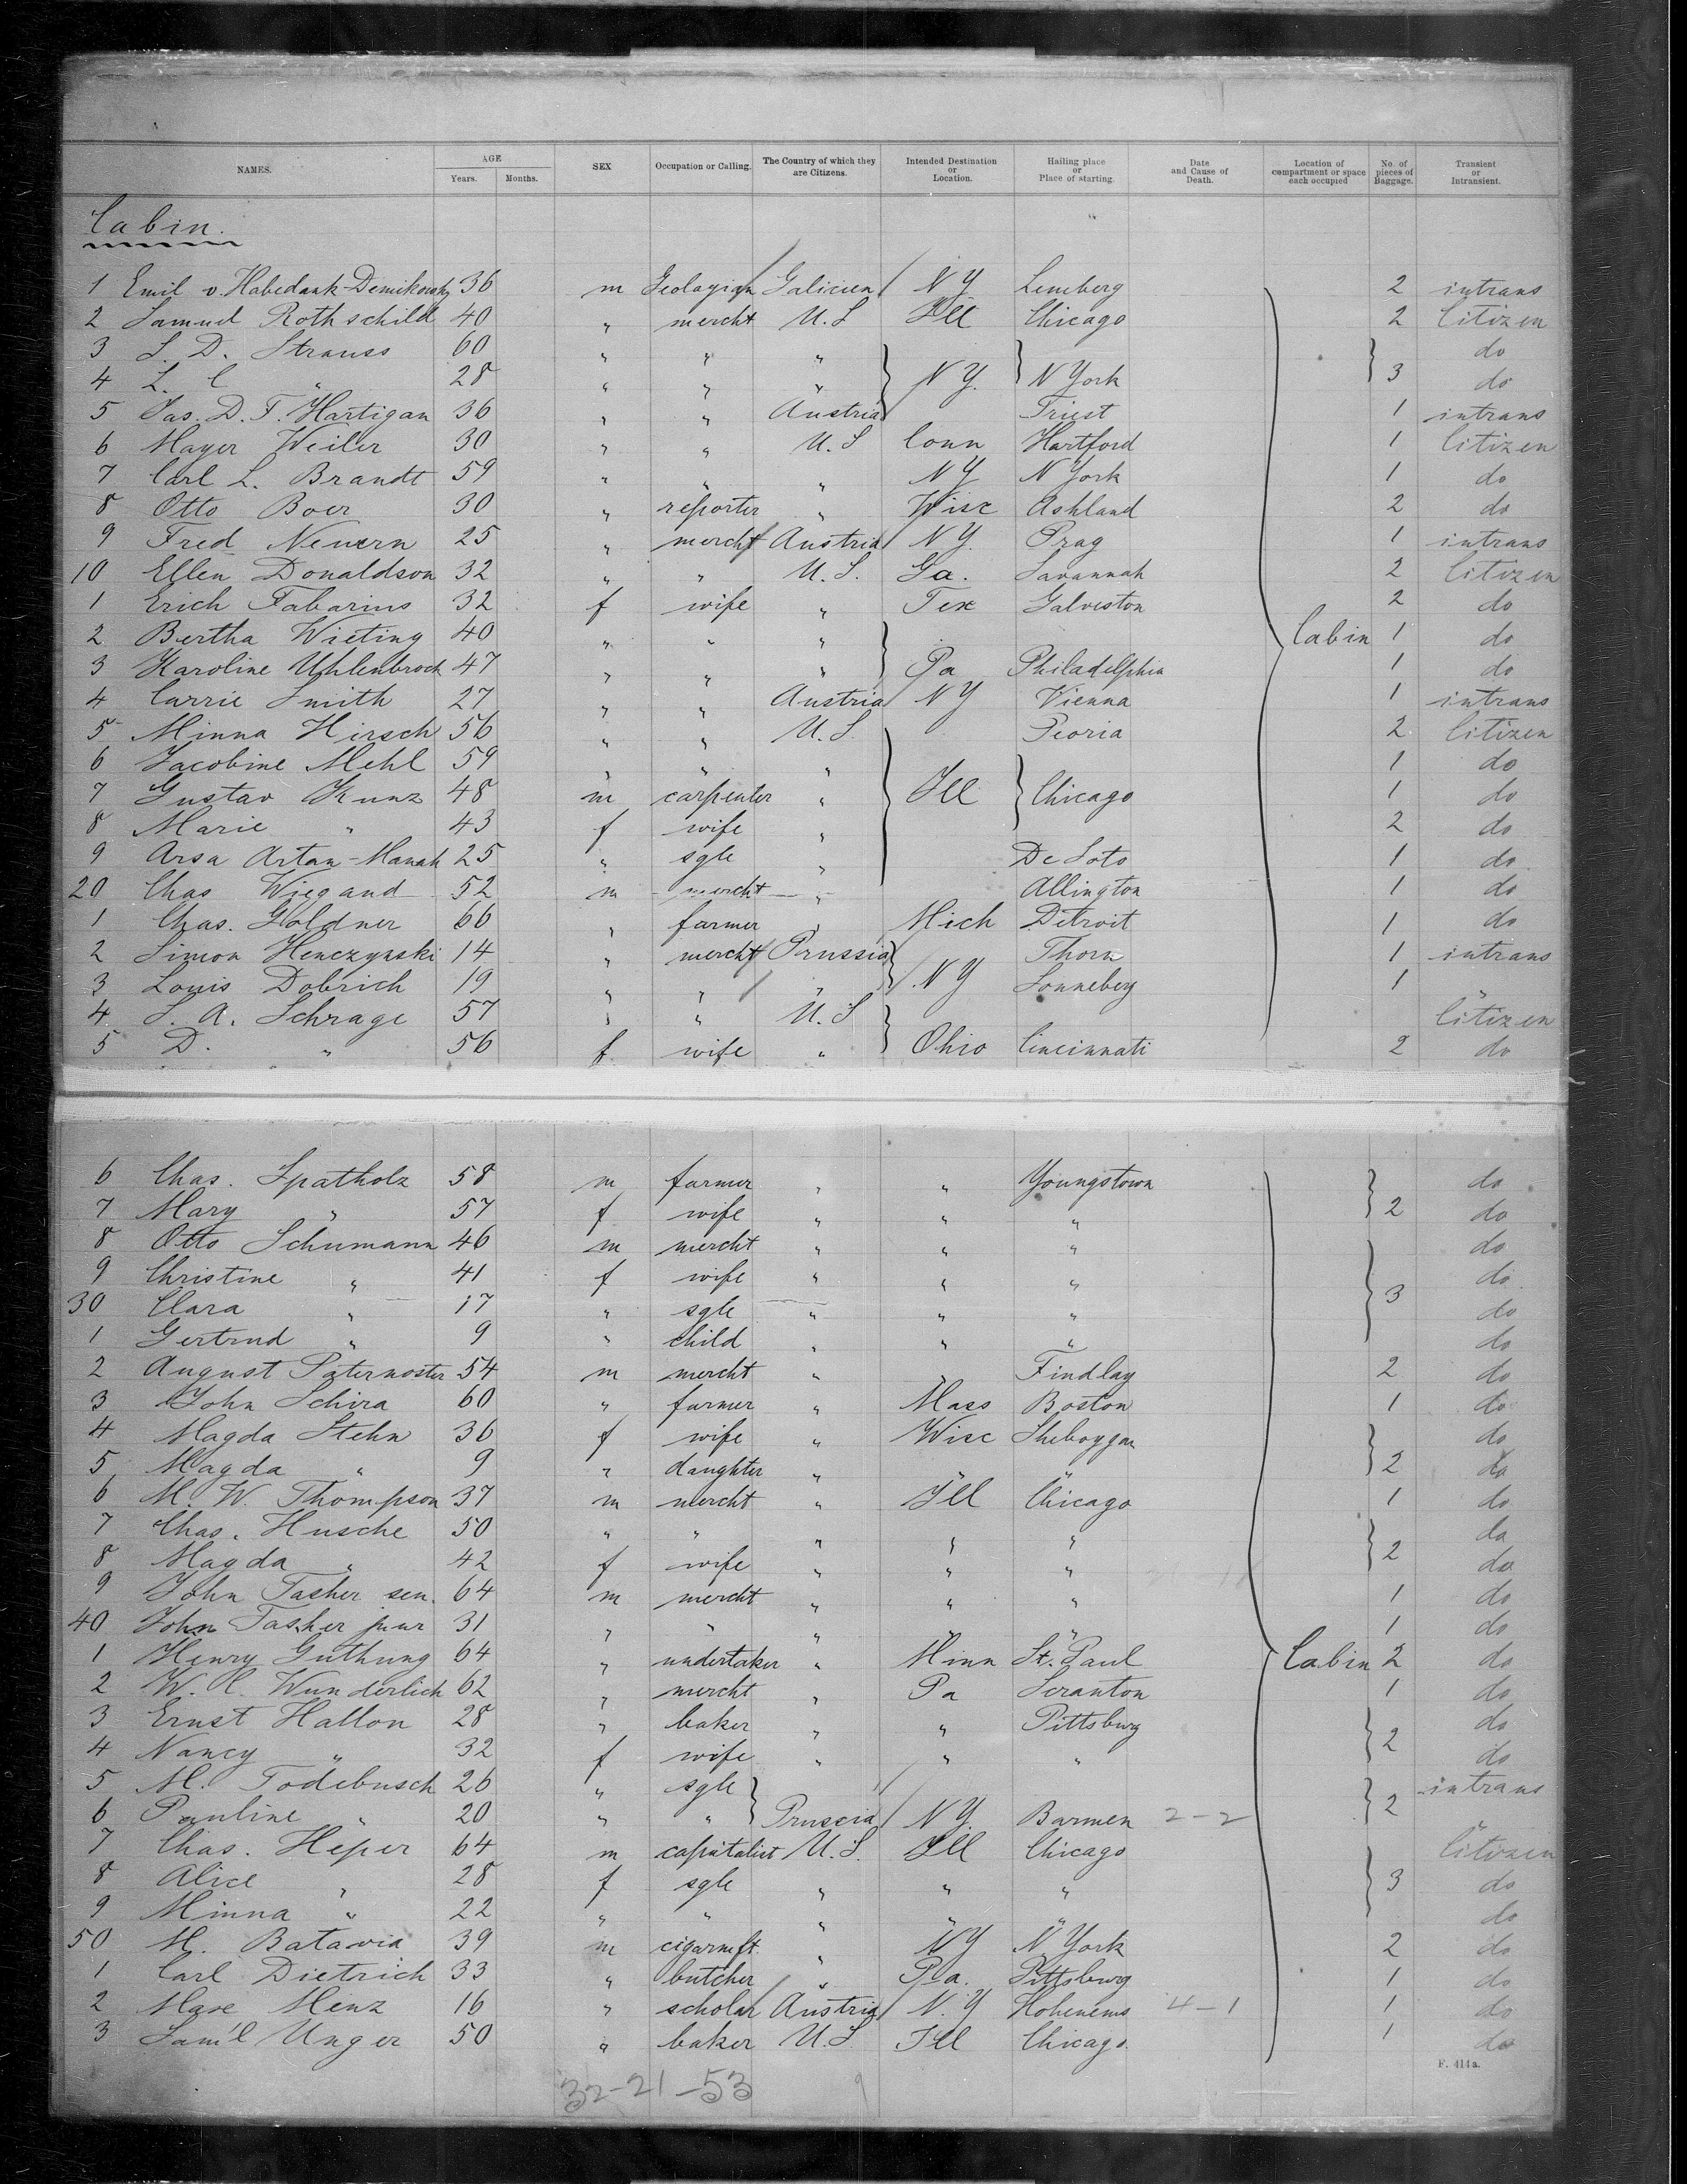 NAMES. AGE Years. Months. SEX Occupation or Calling. The Country of which they are Citizens. Intended Destination or Location. Hailing place or Place of starting. Date and Cause of Death. Location of compartment or space each occupied No. of pieces of Baggage. Transient or Intransient.
Cabin.
1 Emil v. Habedank-Demikowsky 36 m Geologign Galicien NY Lemberg 2 intrans
2 Samuel Rothschild 40 " mercht U.S Ill Chicago 2 Citizen
3 S. D. Strauss 60 " " " do
4 L. C " 28 " " " NY. N York 3 do
5 Jas. D. F. Hartigan 36 " " Austria Triest 1 intrans
6 Mayer Weiler 30 " " U.S Conn Hartford 1 Citizen
7 Carl L. Brandt 59 " " " NY N York 1 do
8 Otto Boer 30 " reporter " Wisc Ashland 2 do
9 Fred Neuern 25 " mercht Austria NY. Prag 1 intrans
10 Ellen Donaldson 32 " " U.S. Ga. Savannah 2 Citizen
1 Erich Fabarius 32 f wife " Tex Galveston 2 do
2 Bertha Wieting 40 " " " Cabin 1 do
3 Karoline Uhlenbrock 47 " " " Pa Philadelphia 1 do
4 Carrie Smith 27 " " Austria NY Vienna 1 intrans
5 Minna Hirsch 56 " " U.S Peoria 2 Citizen
6 Jacobine Mehl 59 " " " 1 do
7 Gustav Kunz 48 m carpenter " Ill Chicago 1 do
8 Marie " 43 f wife " 2 do
9 Arsa Artan-Manah 25 " sgle " De Soto 1 do
20 Chas Wiegand 52 m mercht " Allington 1 do
1 Chas. Goldner 66 " farmer " Mich Detroit 1 do
2 Simon Henczynski 14 " mercht Prussia Thorn 1 intrans
3 Louis Dobrich 19 " " " NY Sonneberg 1 "
4 S. A. Schrage 57 " " U.S Citizen
5 D. " 56 f wife " Ohio Cincinnati 2 do
6 Chas. Spatholz 58 m farmer " " Youngstown do
7 Mary " 57 f wife " " " 2 do
8 Otto Schumann 46 m mercht " " " do
9 Christine " 41 f wife " " " do
30 Clara " 17 " sgle " " " 3 do
1 Gertrud " 9 " child " " " do
2 August Paternoster 54 m mercht " " Findlay 2 do
3 John Schira 60 " farmer " Mass Boston 1 do
4 Magda Stehn 36 f wife " Wisc Sheboygan do
5 Magda " 9 " daughter " " " 2 do
6 M. W. Thompson 37 m mercht " Ill Chicago 1 do
7 Chas. Husche 50 " " " " " do
8 Magda " 42 f wife " " " 2 do
9 John Tasher sen. 64 m mercht " " " 1 do
40 John Tasher junr 31 " " " " " 1 do
1 Henry Guthung 64 " undertaker " Minn St. Paul Cabin 2 do
2 W. C. Wunderlich 62 " mercht " Pa Scranton 1 do
3 Ernst Hallon 28 " baker " " Pittsburg do
4 Nancy " 32 f wife " " " 2 do
5 M. Todebusch 26 " sgle intrans
6 Pauline " 20 " " Prussia NY. Barmen 2-2 2 "
7 Chas. Heper 64 m capitalist U.S. Ill Chicago Citizen
8 Alice " 28 f sgle " " " 3 do
9 Minna " 22 " " " " " do
50 M. Batavia 39 m cigarmft. " NY N York 2 do
1 Carl Dietrich 33 " butcher " Pa. Pittsburg 1 do
2 Max Menz 16 " scholar Austria N.Y Hohenems 4-1 1 do
3 Sam'l Unger 50 " baker U.S Ill Chicago. 1 do
F. 414a.
32-21-53